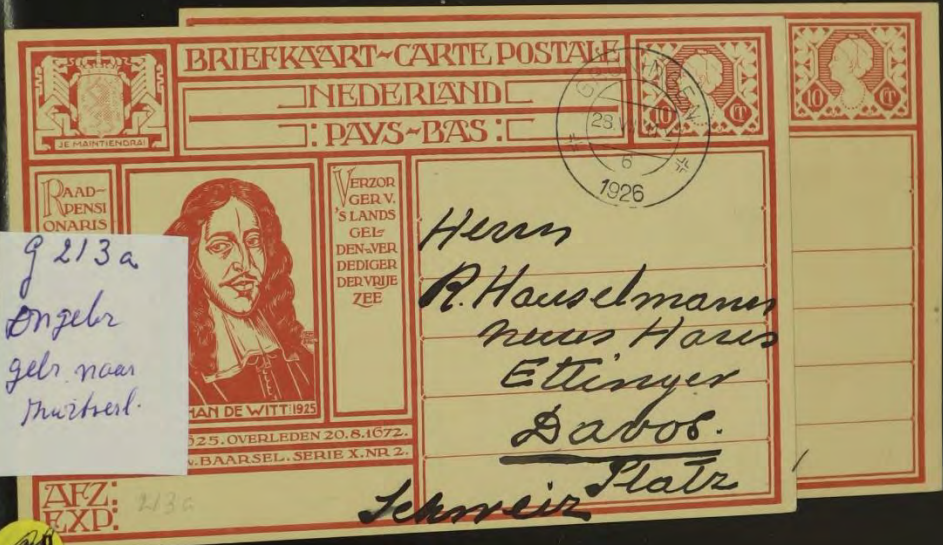 BRIEFKAART~CARTE POSTALE
NEDERLAND
: PAYS~BAS :
JE MAINTIENDRAI
10 Ct
10 Ct
GRONINGEN
28.VII
6
1926
RAAD-
PENSI
ONARIS
VERZOR
GER V.
'S LANDS
GEL-
DEN-VER
DEDIGER
DER VRIJE
ZEE
HAN DE WITT 1925
625. OVERLEDEN 20.8.1672.
V. BAARSEL. SERIE X. NR 2.
AFZ:
EXP:
213a
Herrn
R. Hauselmann
neues Haus
Ettinger
Davos.
Platz
Schweiz
g 213a
Ongebr
gebr. naar